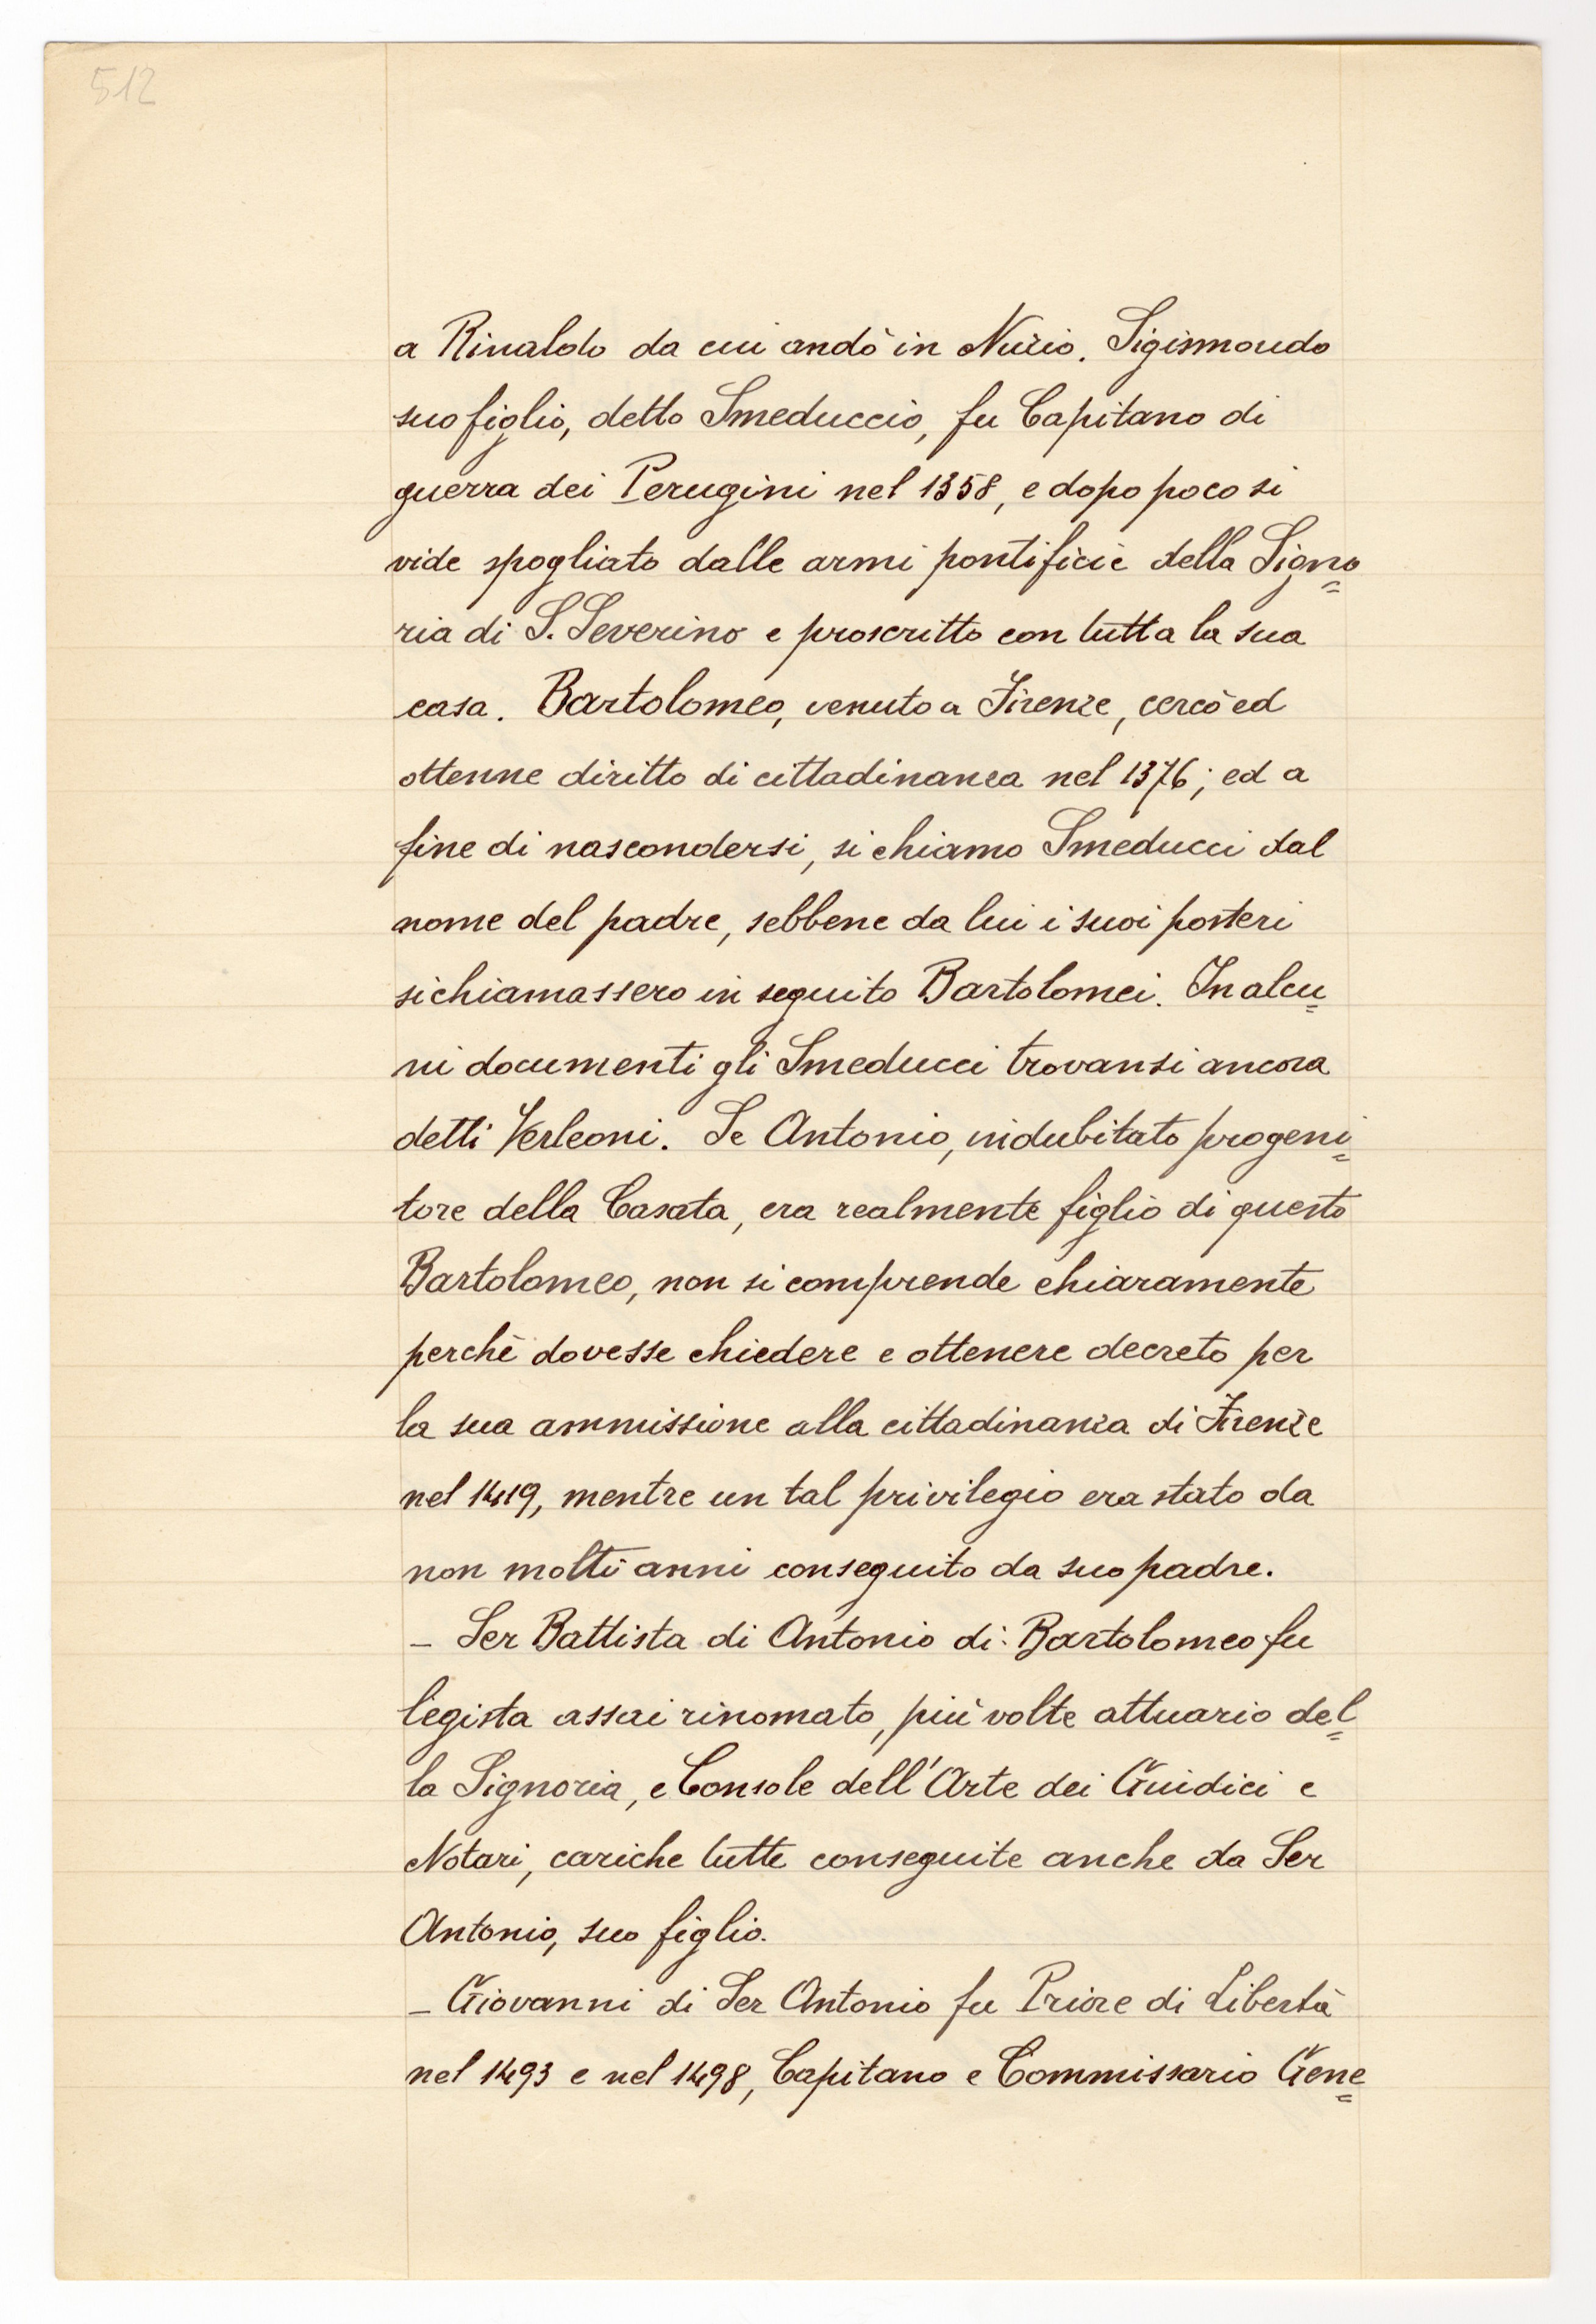 512
a Rinaldo da cui andò in Nuzio. Sigismondo
suo figlio, detto Smeduccio, fu Capitano di
guerra dei Perugini nel 1358, e dopo poco si
vide spogliato dalle armi pontificie della Signo=
ria di S. Severino e proscritto con tutta la sua
casa. Bartolomeo, venuto a Firenze, cercò ed
ottenne diritto di cittadinanza nel 1376; ed a
fine di nascondersi, si chiamo Smeducci dal
nome del padre, sebbene da lui i suoi posteri
si chiamassero in seguito Bartolomei. In alcu=
ni documenti gli Smeducci trovansi ancora
detti Verleoni. Se Antonio, indubitato progeni=
tore della Casata, era realmente figlio di questo
Bartolomeo, non si comprende chiaramente
perchè dovesse chiedere e ottenere decreto per
la sua ammissione alla cittadinanza di Firenze
nel 1419, mentre un tal privilegio era stato da
non molti anni conseguito da suo padre.
– Ser Battista di Antonio di Bartolomeo fu
legista assai rinomato, più volte attuario del=
la Signoria, e Console dell'Arte dei Giudici e
Notari, cariche tutte conseguite anche da Ser
Antonio, suo figlio.
– Giovanni di Ser Antonio fu Priore di Libertà
nel 1493 e nel 1498, Capitano e Commissario Gene=